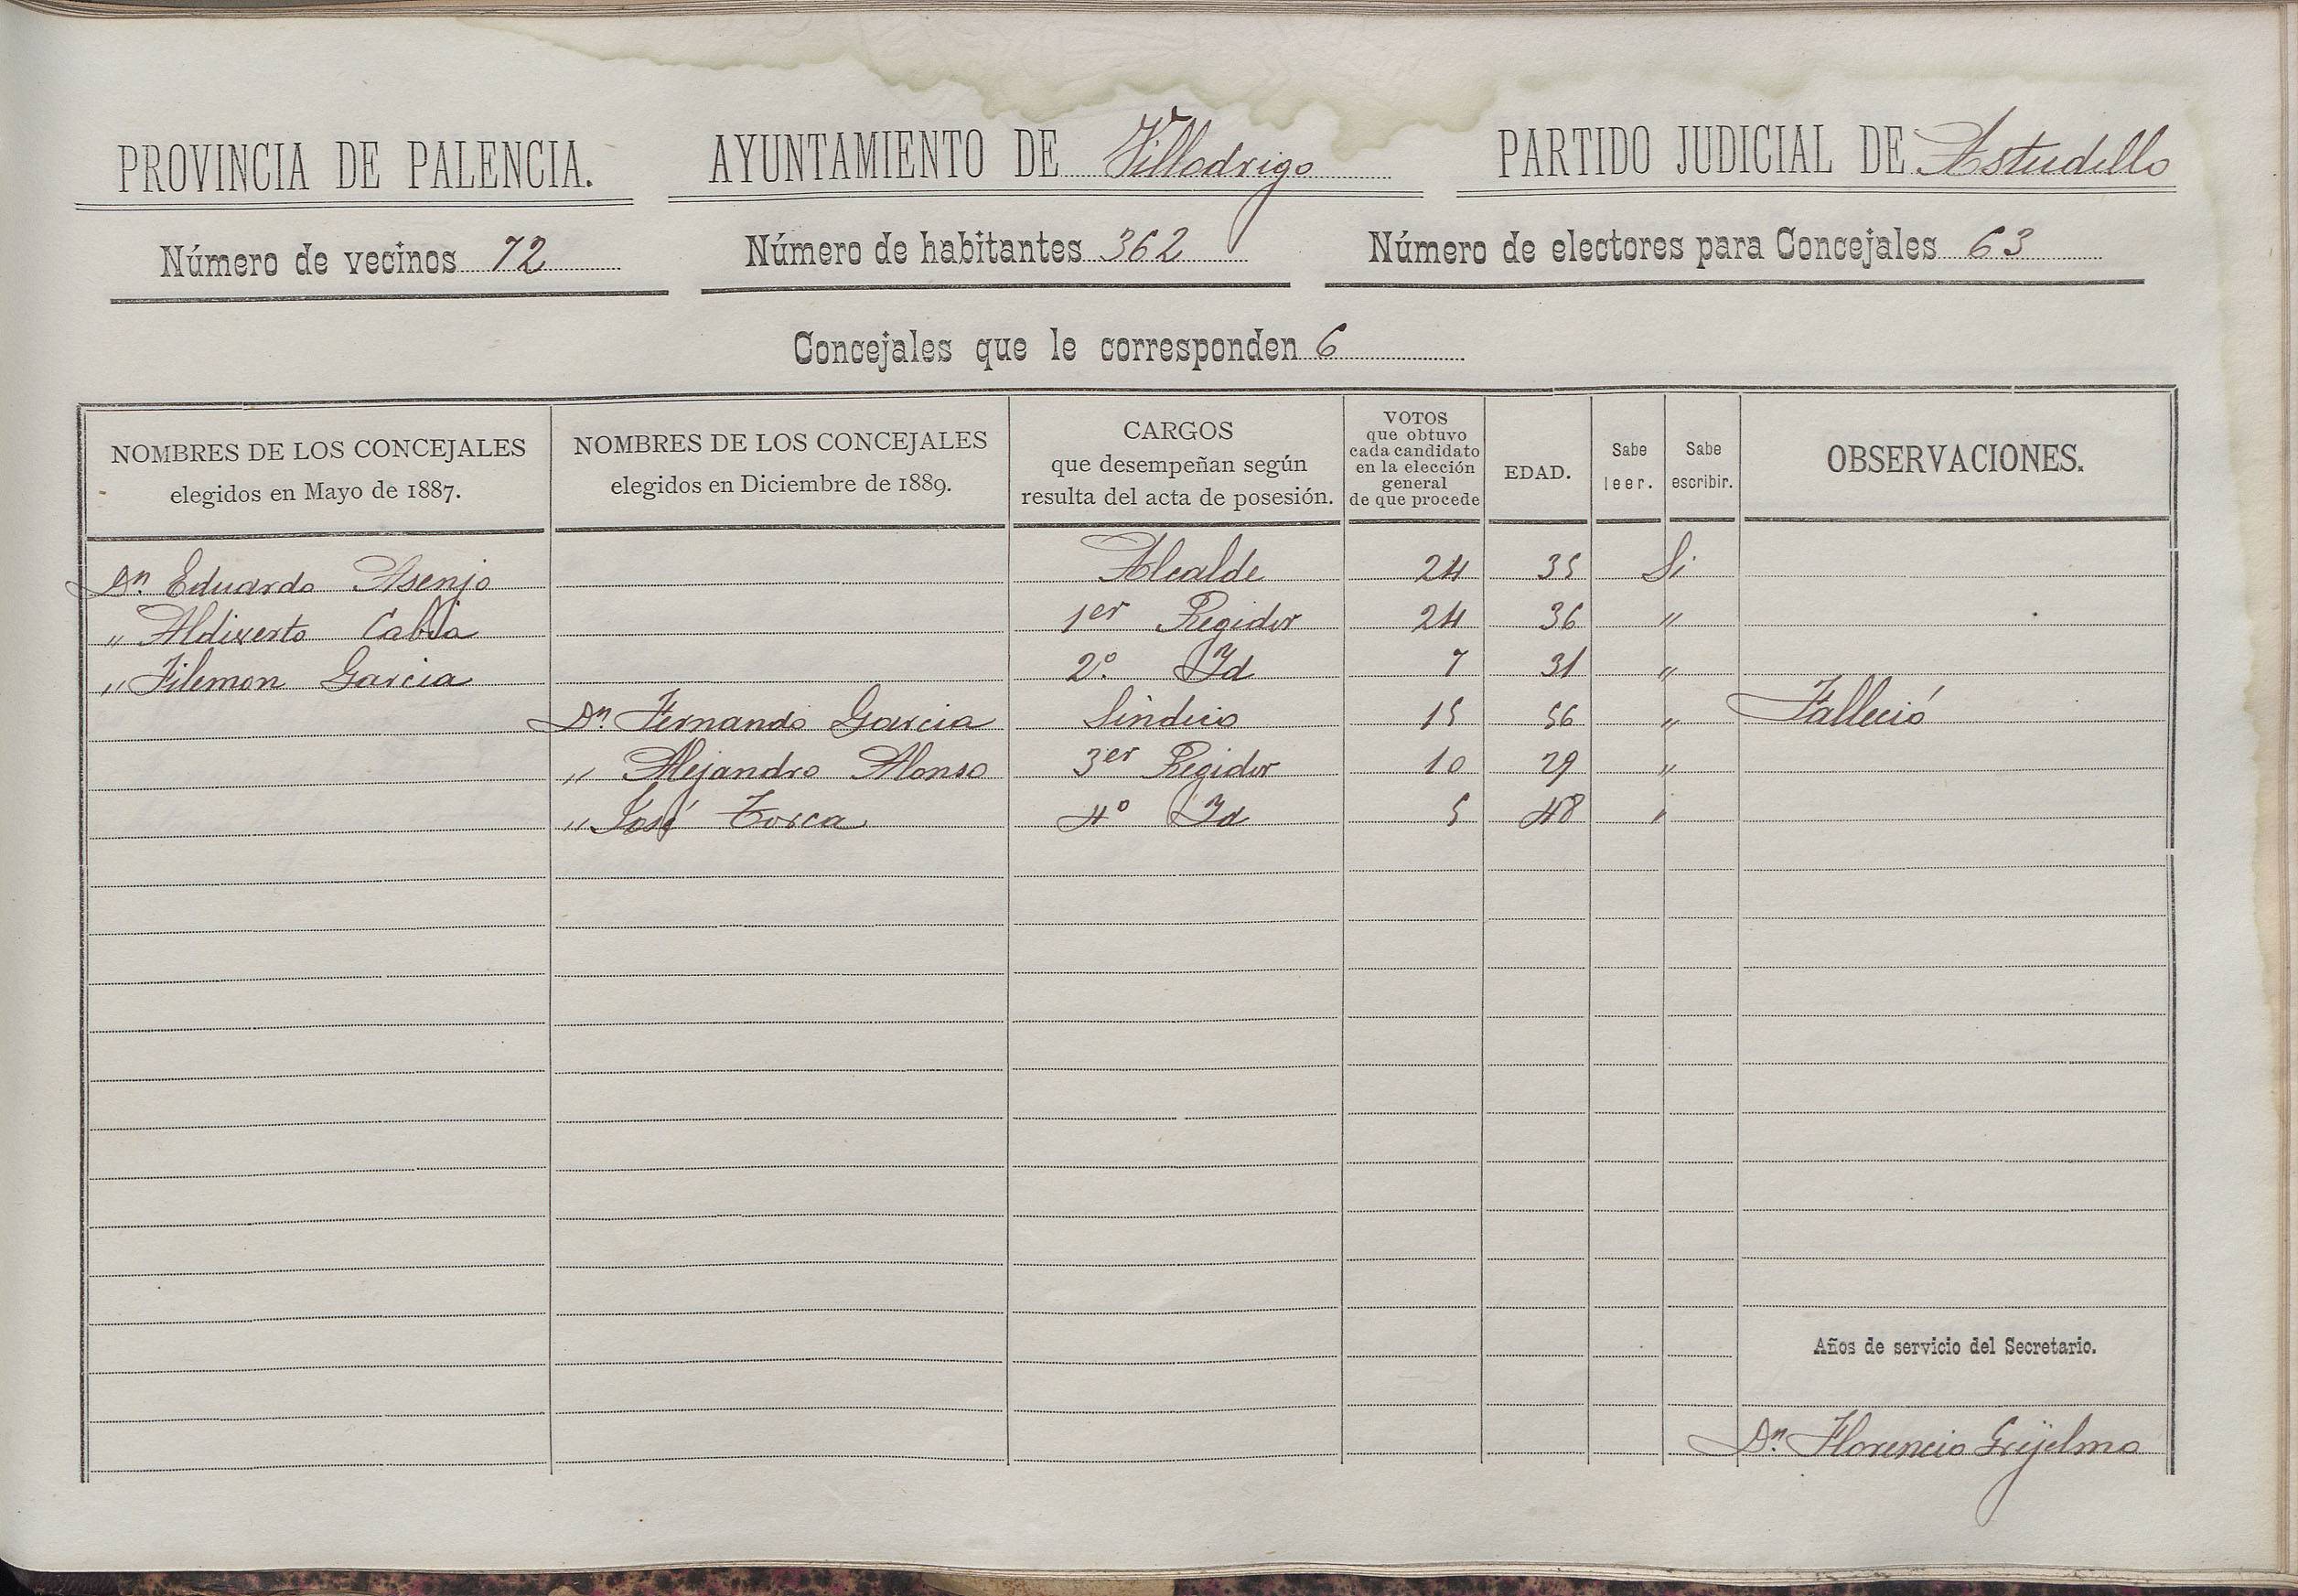 PROVINCIA DE PALENCIA. AYUNTAMIENTO DE Villodrigo PARTIDO JUDICIAL DE Astudillo
Número de vecinos 72 Número de habitantes 362 Número de electores para Concejales 63
Concejales que le corresponden 6
NOMBRES DE LOS CONCEJALES
elegidos en Mayo de 1887.
NOMBRES DE LOS CONCEJALES
elegidos en Diciembre de 1889.
CARGOS
que desempeñan según
resulta del acta de posesión.
VOTOS
que obtuvo
cada candidato
en la elección
general
de que procede
EDAD.
Sabe
leer.
Sabe
escribir.
OBSERVACIONES.
Dn. Eduardo Asenjo Alcalde 24 35 Si
„ Aldiverto Cabia 1er Regidor 24 36 „
„ Filemon Garcia 2º. Id 7 31 „
Dn. Fernando Garcia Sindico 15 56 „ Falleció
„ Alejandro Alonso 3er Regidor 10 29 „
„ José Torca 4º Id 5 48 „
Años de servicio del Secretario.
Dn. Florencio Grijelmo